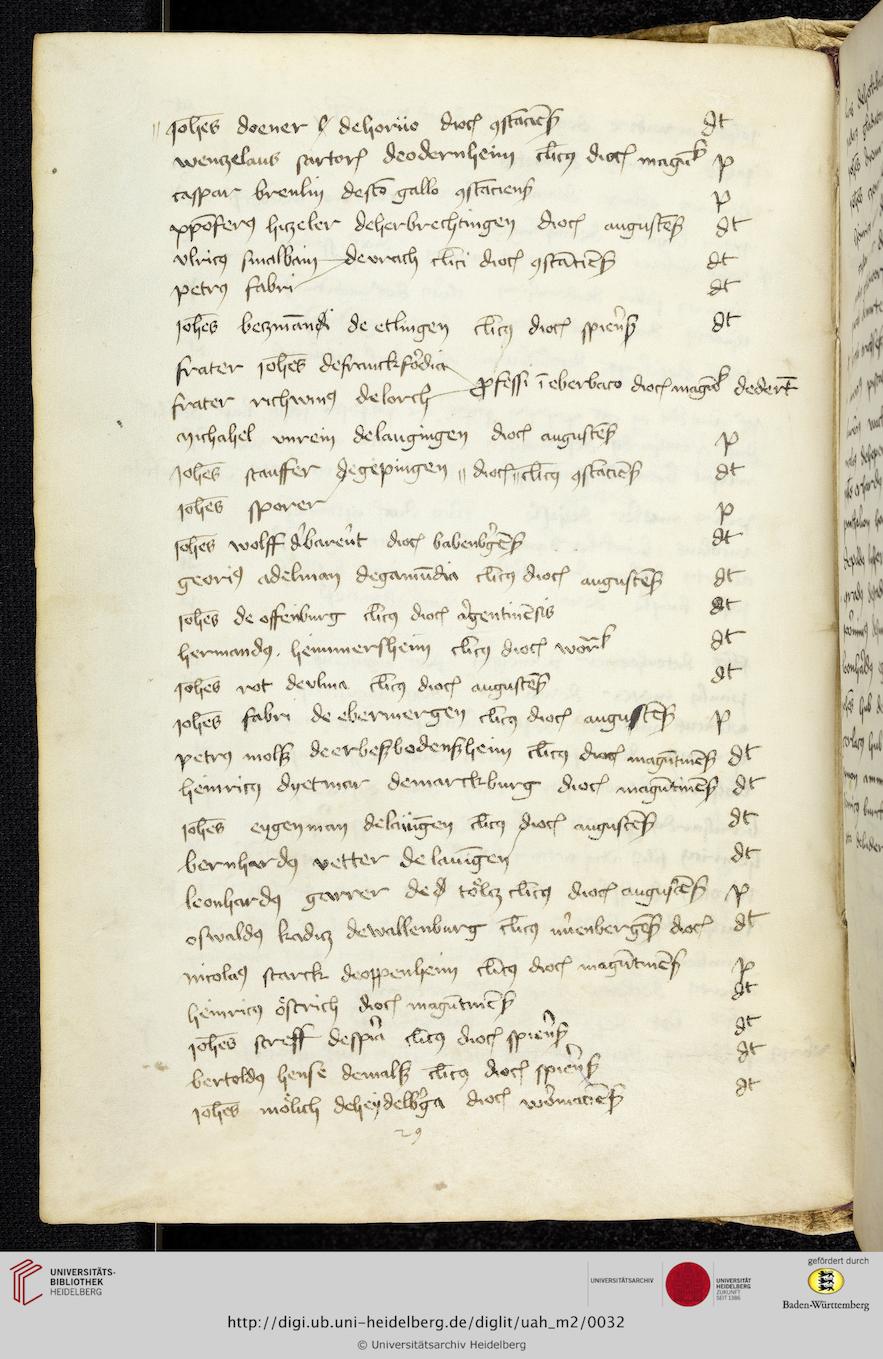 Joh̄es doener de horiio dioc̄ ꝯstācie̅ß dt
Wentzelaus sartor̄ de odernheim cl̄icꝰ dioc̄ magūt̄ p
Caspar brenlin de s̄cto gallo ꝯstāciens̄ p
xp̄oferꝰ hitzeler de herbrechtingen dioc̄ augustēs̄ dt
vlricꝰ smalhain de vrach cl̄ici dioc̄ ꝯstātiēs̄ dt
petrꝰ fabri dt
Joh̄es betzman̄di de etlingen cl̄icꝰ dioc̄ spiren̄s̄ dt
frater Joh̄es de franckfordia
frater richwinꝰ de lorch ꝓfessi ī eberbaco dioc̄ magūt̄ dedert̄
Michahel vnrein de laugingen dioc̄ augustēs̄ p
Joh̄es stauffer de gepingen " dioc̄ " cl̄icꝰ ꝯstāciēs̄ dt
Joh̄es sporer p
Joh̄es wolff d' barent dioc̄ babenbḡēs̄ dt
Georiꝰ adelman de gamūdia cl̄icꝰ dioc̄ augustēs̄ dt
Joh̄es de offenburg cl̄icꝰ dioc̄ argentinēsis dt
hermandꝰ hemmersheim cl̄icꝰ dioc̄ worm̄ dt
Joh̄es rot de vlma cl̄icꝰ dioc̄ augustēs̄ dt
Joh̄es fabri de ebermergen cl̄icꝰ dioc̄ augustēs̄ p
petrꝰ molß de erbeßbodenßheim cl̄icꝰ dioc̄ magūtinēs̄ dt
heinricꝰ dyetmar de marckburg dioc̄ magūtinēs̄ dt
Joh̄es eygenman de lauingen cl̄icꝰ dioc̄ augustēs̄ dt
bernhardꝰ vetter de lauīgen dt
leonhardꝰ gerrer de tölcz cl̄icꝰ dioc̄ augustēs̄ p
oswaldꝰ kadicz de wallenburg cl̄icꝰ nuēnbergēs̄ dioc̄ dt
nicolaꝰ starck de oppenheim cl̄icꝰ dioc̄ magūtinēs̄ p
heinricꝰ östrich dioc̄ magūtinēs̄ dt
Joh̄es streff de spira cl̄icꝰ dioc̄ spirens̄ dt
bertoldꝰ hense de malß cl̄icꝰ dioc̄ spirens̄ dt
Joh̄es mölich de heydelbga dioc̄ wormaciēs̄ dt
29
UNIVERSITÄTS-
BIBLIOTHEK
HEIDELBERG
UNIVERSITÄTSARCHIV
UNIVERSITÄT
HEIDELBERG
ZUKUNFT
SEIT 1386
gefördert durch
Baden-Württemberg
http://digi.ub.uni-heidelberg.de/diglit/uah_m2/0032
© Universitätsarchiv Heidelberg